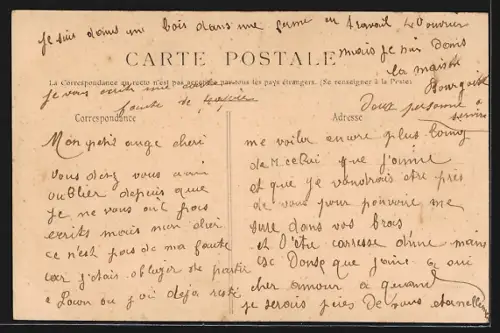 Je suis dans un bois dans une ferme en travail 40 ouvrier
mais je suis Dans
la maison
Bourgoise
Deux personne a
servire
CARTE POSTALE
La Correspondance au recto n'est pas acceptée par tous les pays étrangers. (Se renseigner à la Poste)
je vous écrits une
faute de papier
Correspondance
Adresse
Mon petit ange cheri
vous devez vous avoir
oublier depuis que
Je ne vous ait pas
ecrits mais mon cher
ce n'est pas de ma faute
car j'etais obliger de partir
a Laon ou j'ai deja resté
me voila encore plus loing
de M. celui que j'aime
et que je voudrais etre près
de vous pour pouvoir me
dans vos bras
et l'être caresse d'une main
que j'aime
cher amour a quand
je serais près De vous eternelle